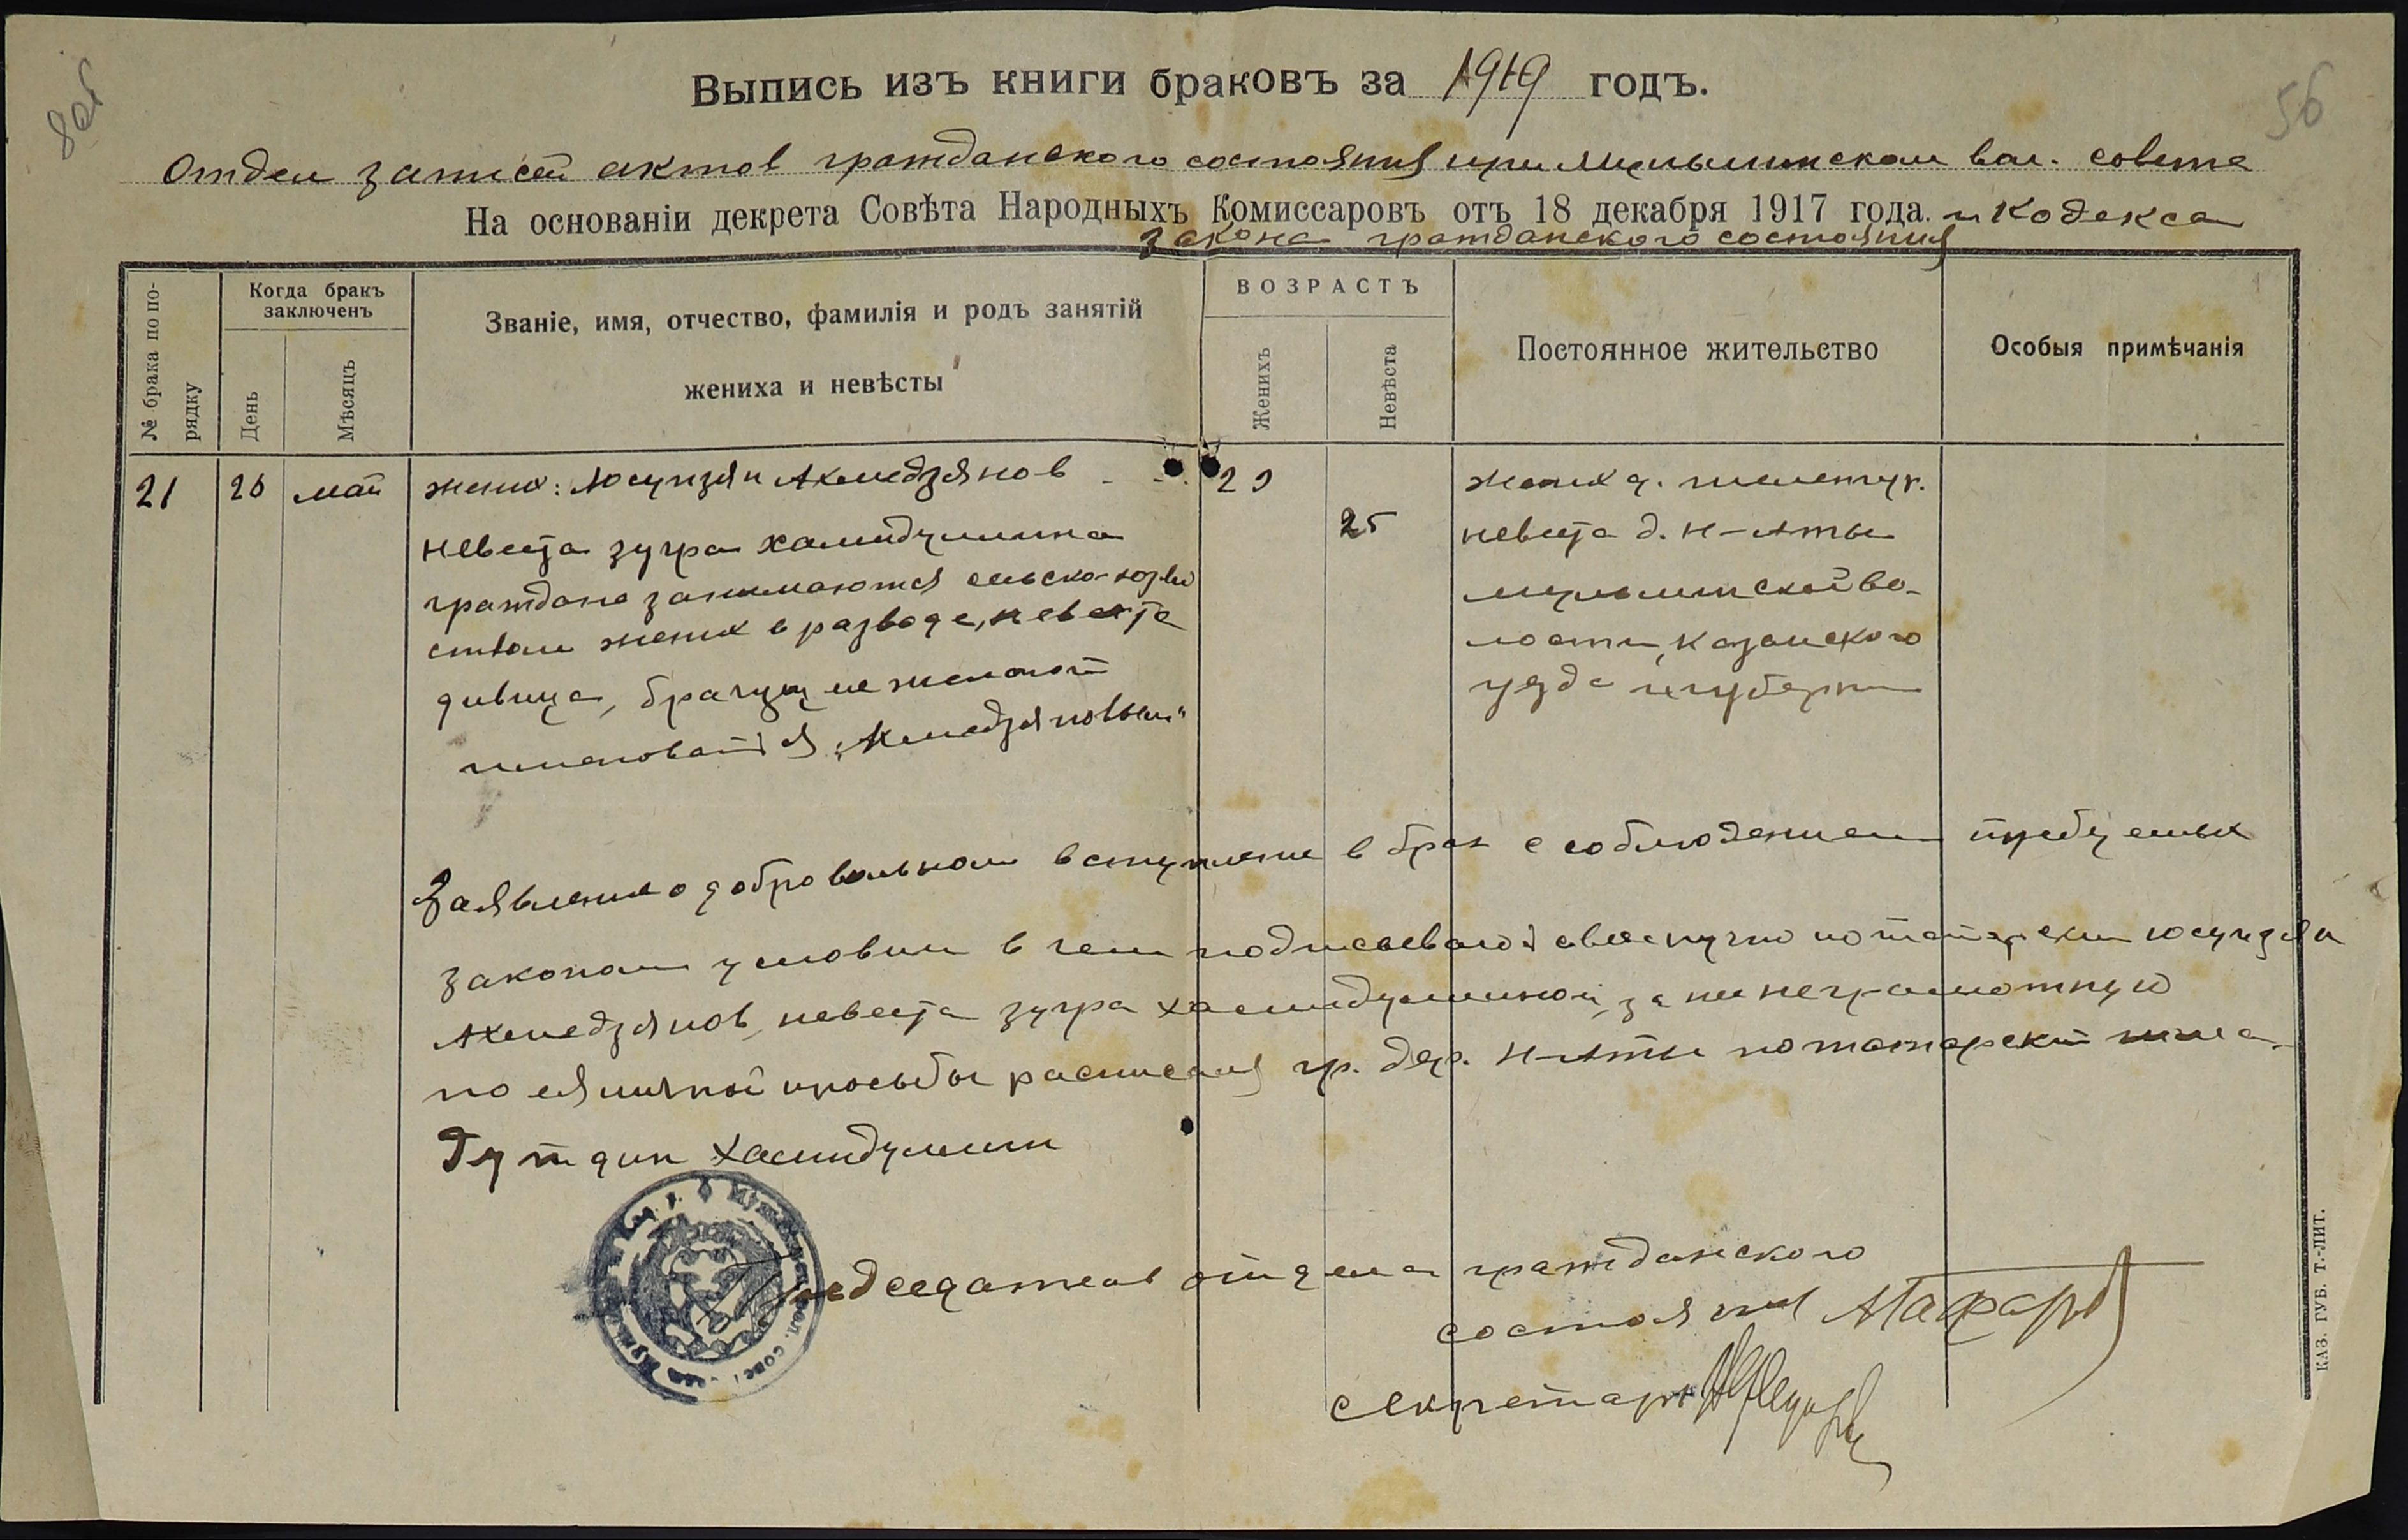 56
Выпись изъ книги браковъ за 1919 годъ.
Отдел записей актов гражданского состояния при Мульминском вол. совете
На основаніи декрета Совѣта Народныхъ Комиссаровъ отъ 18 декабря 1917 года. и Кодекса
закона гражданского состояния
№ брака по порядку
Когда бракъ заключенъ
День
Мѣсяцъ
Званіе, имя, отчество, фамилія и родъ занятій
жениха и невѣсты
ВОЗРАСТЪ
Женихъ
Невѣста
Постоянное жительство
Особыя примѣчанія
21 26 май жених: Юсупзян Ахмедзянов 29 жених д.
невеста зугра хамидуллина 25 невеста д. Н-Аты
граждане занимаются сельско-хозяй мульминской во-
ством жених в разводе, невеста лости, казанского
девица, брачущ. желают уезда и губерни
именоватся „Ахмедзяновым“
Заявление о добровольном вступление в брак с соблюдением требуемых
законом условии в чем подписываюсь по татарски юсупзян
Ахмедзянов, невеста зугра хамидуллиной, за ние неграмотную
по ея личной просьбы расписался гр. дер. Н-Аты по татарски
хамидуллин
Председатель отдела гражданского
состояния
секретарь
КАЗ. ГУБ. Т.-ЛИТ.